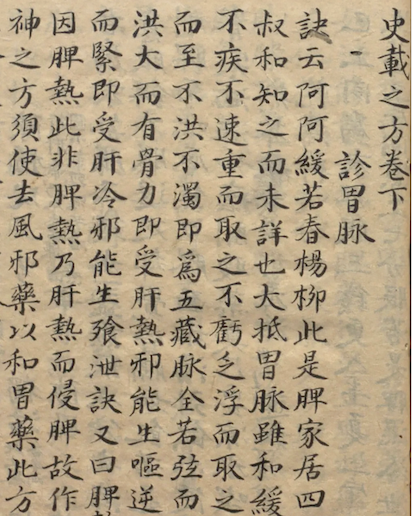 史載之方卷下
一 診胃脉
訣云阿阿緩若春楊柳此是脾家居四
叔和知之而未詳也大抵胃脉雖和緩
不疾不速重而取之不虧乏浮而取之
而至不洪不濁即爲五藏脉全若弦而
洪大而有骨力即受肝熱邪能生嘔逆
而緊即受肝冷邪能生飱泄訣又曰脾
因脾熱此非脾熱乃肝熱而侵脾故作
神之方須使去風邪藥以和胃藥此方